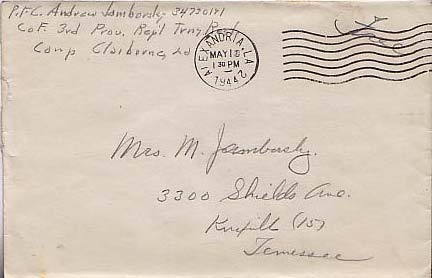 P.F.C. Andrew Jamborsky - 34720171
Co F. 3rd Prov. Repl Trng. Regt
Camp Claiborne, La
Free
ALEXANDRIA, LA.
MAY 15
1 30 PM
1944
2
Mrs. M. Jamborsky.
3300 Shields Ave.
Knxville (15)
Tennessee